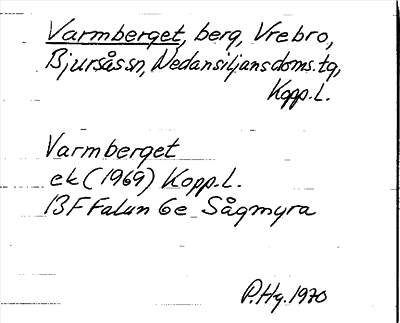 Varmberget, berg, Vrebro,
Bjursåssn, Nedansiljansdoms.tg,
Kopp.L.
Varmberget
ek (1969) Kopp.L.
13F Falun 6e Sågmyra
P.Hg. 1970